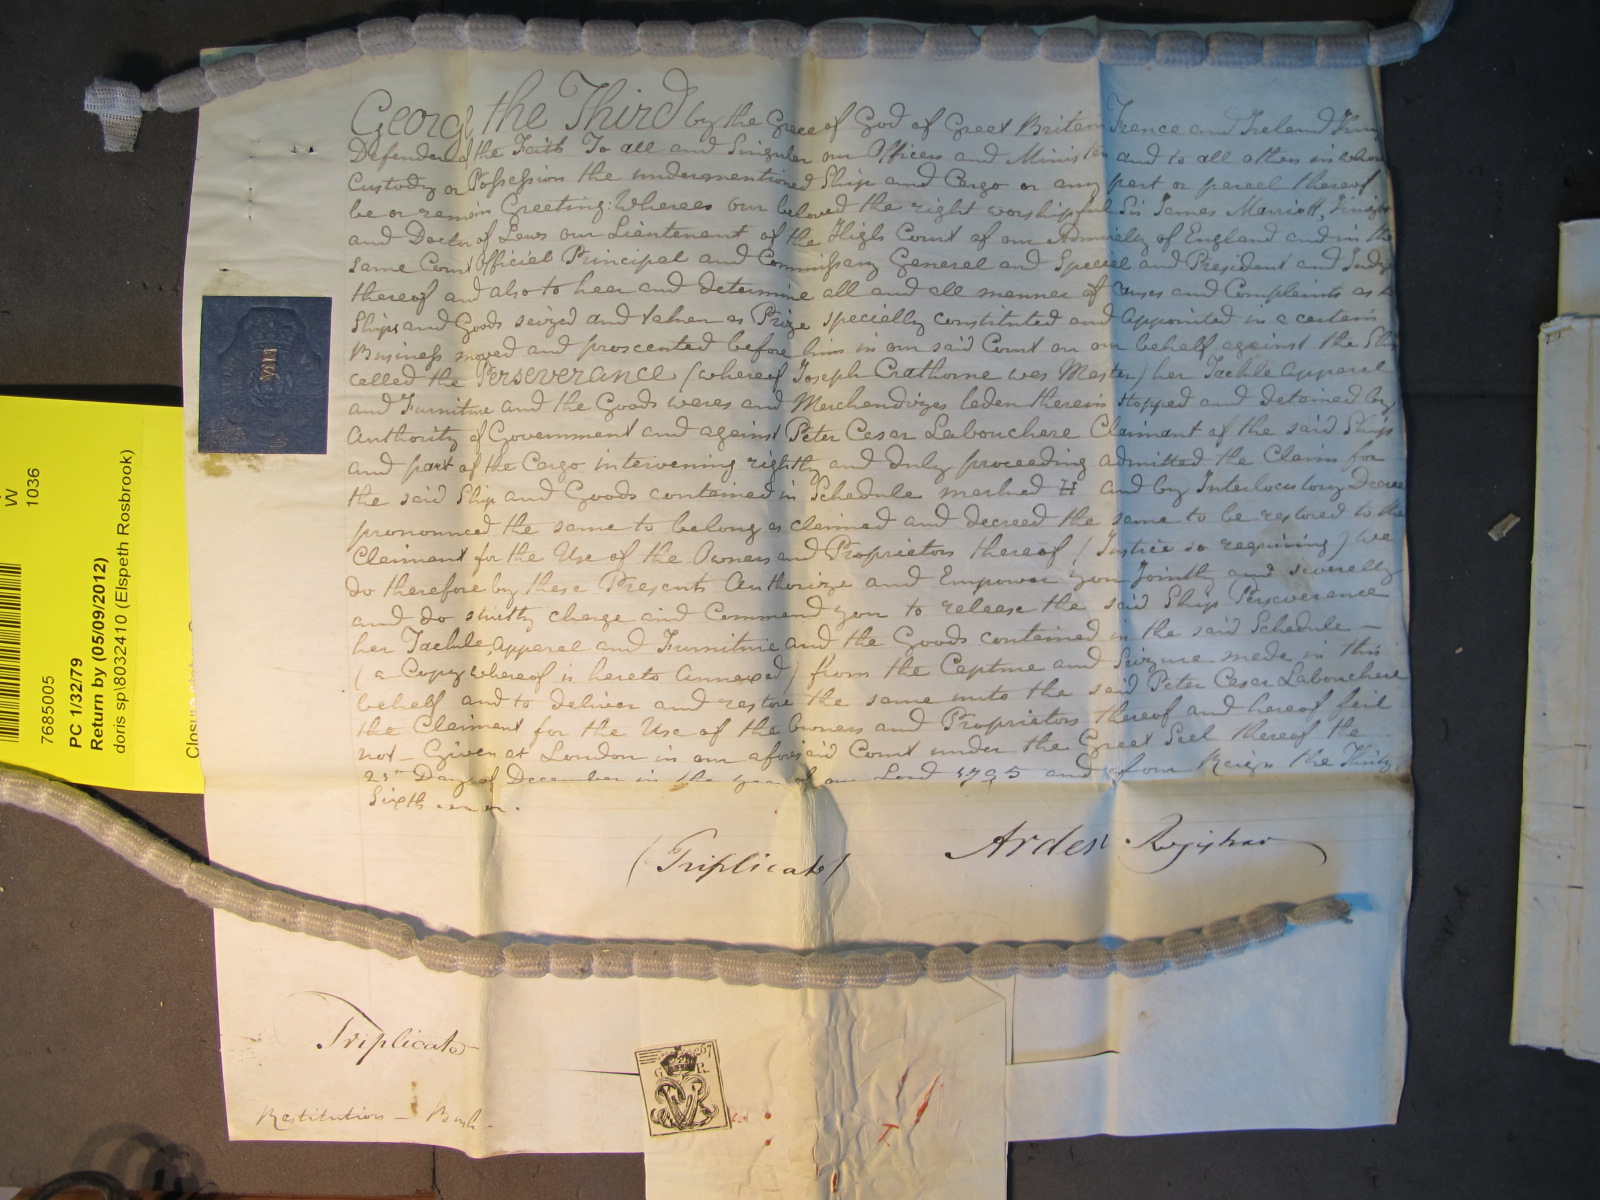 George the Third by the Grace of God of Great Britain France and Ireland King
Defender of the Faith To all and Singular our Officers and Ministers and to all others in whose
Custody or Possession the undermentioned Ship and Cargo or any part or parcel thereof
be or remain Greeting: Whereas our beloved the right worshipful Sir James Marriott, Knight
and Doctor of Laws our Lieutenant of the High Court of our Admiralty of England and in the
same Court Official Principal and Commissary General and Special and President and Judge
thereof and also to hear and determine all and all manner of Causes and Complaints as to
Ships and Goods seized and taken as Prize specially constituted and appointed in a certain
Business moved and prosecuted before him in our said Court on our behalf against the Ship
called the Perseverance (whereof Joseph Crathorne was Master) her Tackle Apparel
and Furniture and the Goods wares and Merchandizes laden therein stopped and detained by
Authority of Government and against Peter Cesar Labouchere Claimant of the said Ship
and part of the Cargo intervening rightly and duly proceeding admitted the Claim for
the said Ship and Goods contained in Schedule marked H and by Interlocutory Decree
pronounced the same to belong as claimed and decreed the same to be restored to the
Claimant for the Use of the Owners and Proprietors thereof (Justice so requiring) We
do therefore by these Presents Authorize and Empower you Jointly and severally
and do strictly charge and Command you to release the said Ship Perseverance
her Tackle, Apparel and Furniture and the Goods contained in the said Schedule —
(a Copy whereof is hereto annexed) from the Capture and Seizure made in this
behalf and to deliver and restore the same unto the said Peter Cesar Labouchere
the Claimant for the Use of the Owners and Proprietors thereof and hereof fail
not — Given at London in our aforesaid Court under the Great Seal thereof the
Day of December in the year of our Lord 1795 and of our Reign the Thirty
Sixth
(Triplicate)
Arden Registrar
Triplicate
Restitution — Bush
G R
W
1036
7685005
PC 1/32/79
Return by (05/09/2012)
doris sp\8032410 (Elspeth Rosbrook)